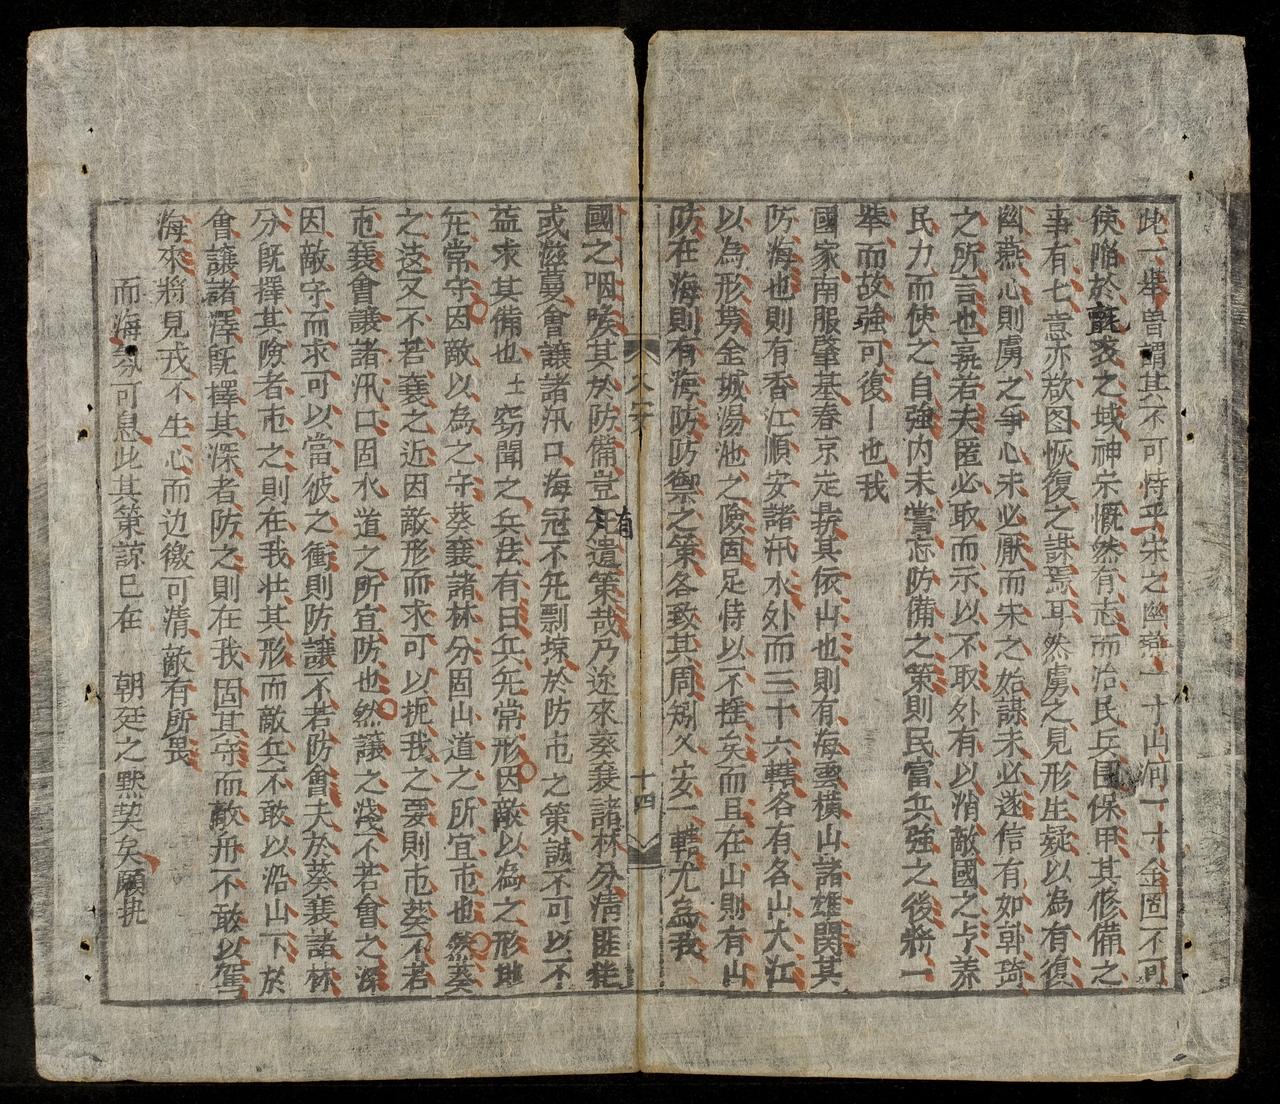 此一舉曽謂其不可恃乎宋之幽燕一寸山河一寸金固不可
使陷於氈裘之域神宗慨然有志而治民兵固保甲其修備之
事有七意亦欲图恢復之謀焉耳然虜之見形生疑以為有復
幽燕心則虜之爭心未必厭而宋之始謀未必遂信有如韓琦
之所言也曷若夫匿必取而示以不取外有以消敵國之
民力而使之自強内未嘗忘防備之策則民富兵強之後將一
舉而故強可復也我
國家南服肇基春京定其依山也則有海雲横山諸雄関其
防海也則有香江順安諸汛水外而三十六轄各有各山大江
以為形势金城湯池之險固足恃以不搖矣而且在山則有山
防在海則有海防防禦之策各致其周矧久安一轄尤為我
久安
十四
國之咽喉其於防備豈有遺策哉乃近來葵襄諸林分清匪徒
或滋蔓會讓諸汛口海冦不免剽掠於防屯之策誠不可以不
益求其備也 士窃聞之兵法有曰兵无常形因敵以為之形地
无常守因敵以為之守葵襄諸林分固山道之所宜屯也然葵
之遠又不若襄之近因敵形而求可以扼我之要則屯葵不若
屯襄會讓諸汛口固水道之所宜防也然讓之淺不若會之深
因敵守而求可以當彼之衝則防讓不若防會夫於葵襄諸林
分既擇其險者屯之則在我壮其形而敵兵不敢以沿山下於
會讓諸澤既擇其深者防之則在我固其守而敵舟不敢以駕
海來將見戎不生心而边徼可清敵有所畏
而海氛可息此其策諒已在 朝廷之黙契矣願执